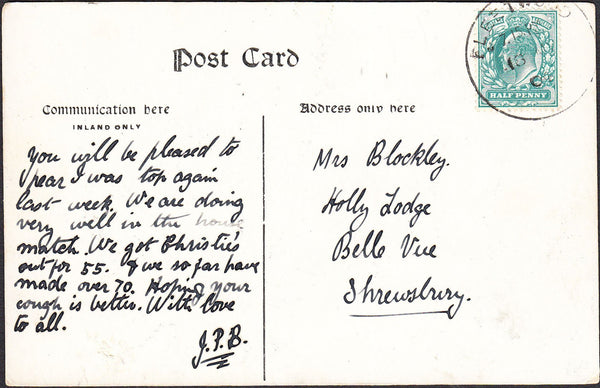 Post Card
Communication here
INLAND ONLY
Address only here
HALF PENNY
FLEETWOOD
13
You will be pleased to
hear I was top again
last week. We are doing
very well in the house
match. We got Christie's
out for 55. & we so far have
made over 70. Hoping your
cough is better. With love
to all.
J.P.B.
Mrs Blockley.
Holly Lodge
Belle Vue
Shrewsbury.